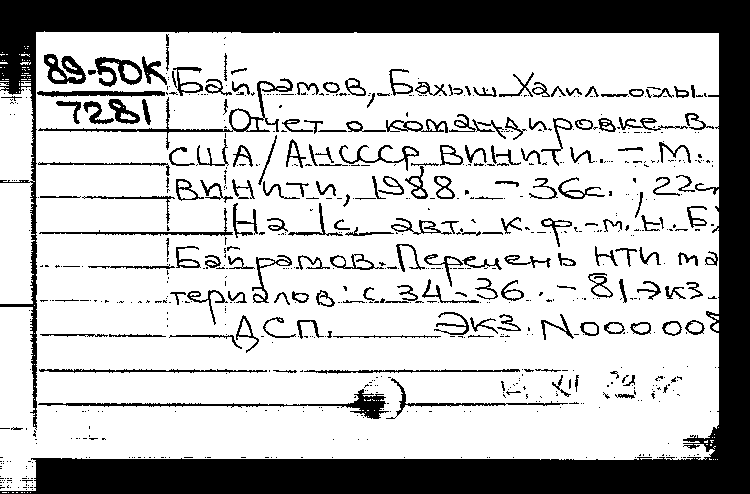 89-50К
7281
Байрамов, Бахыш Халил оглы
Отчет о командировке в
США / АН СССР, ВИНИТИ. – М.
ВИНИТИ, 1988. – 36с. ; 22с
На 1с. авт.: к. ф.-м. н. Б.
Байрамов. Перечень НТИ ма
териалов: с. 34-36. – 81 экз.
ДСП. Экз. N000008
XII